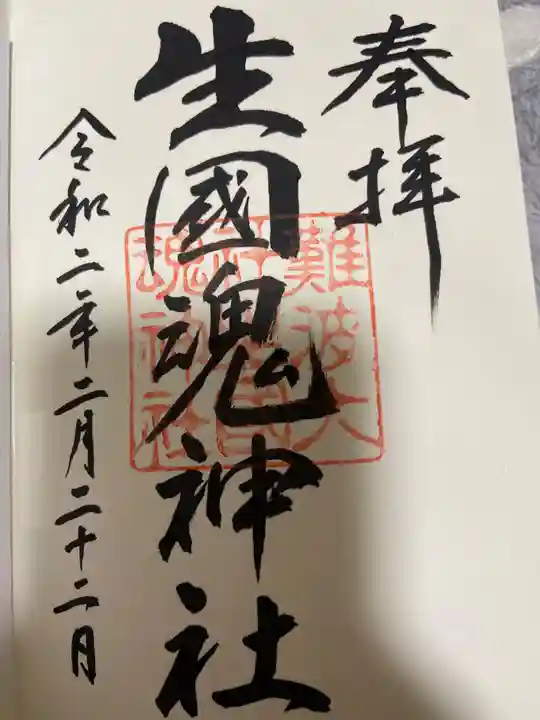 奉拝
生國魂神社
難波大
社生國
魂神社
令和二年二月二十二日